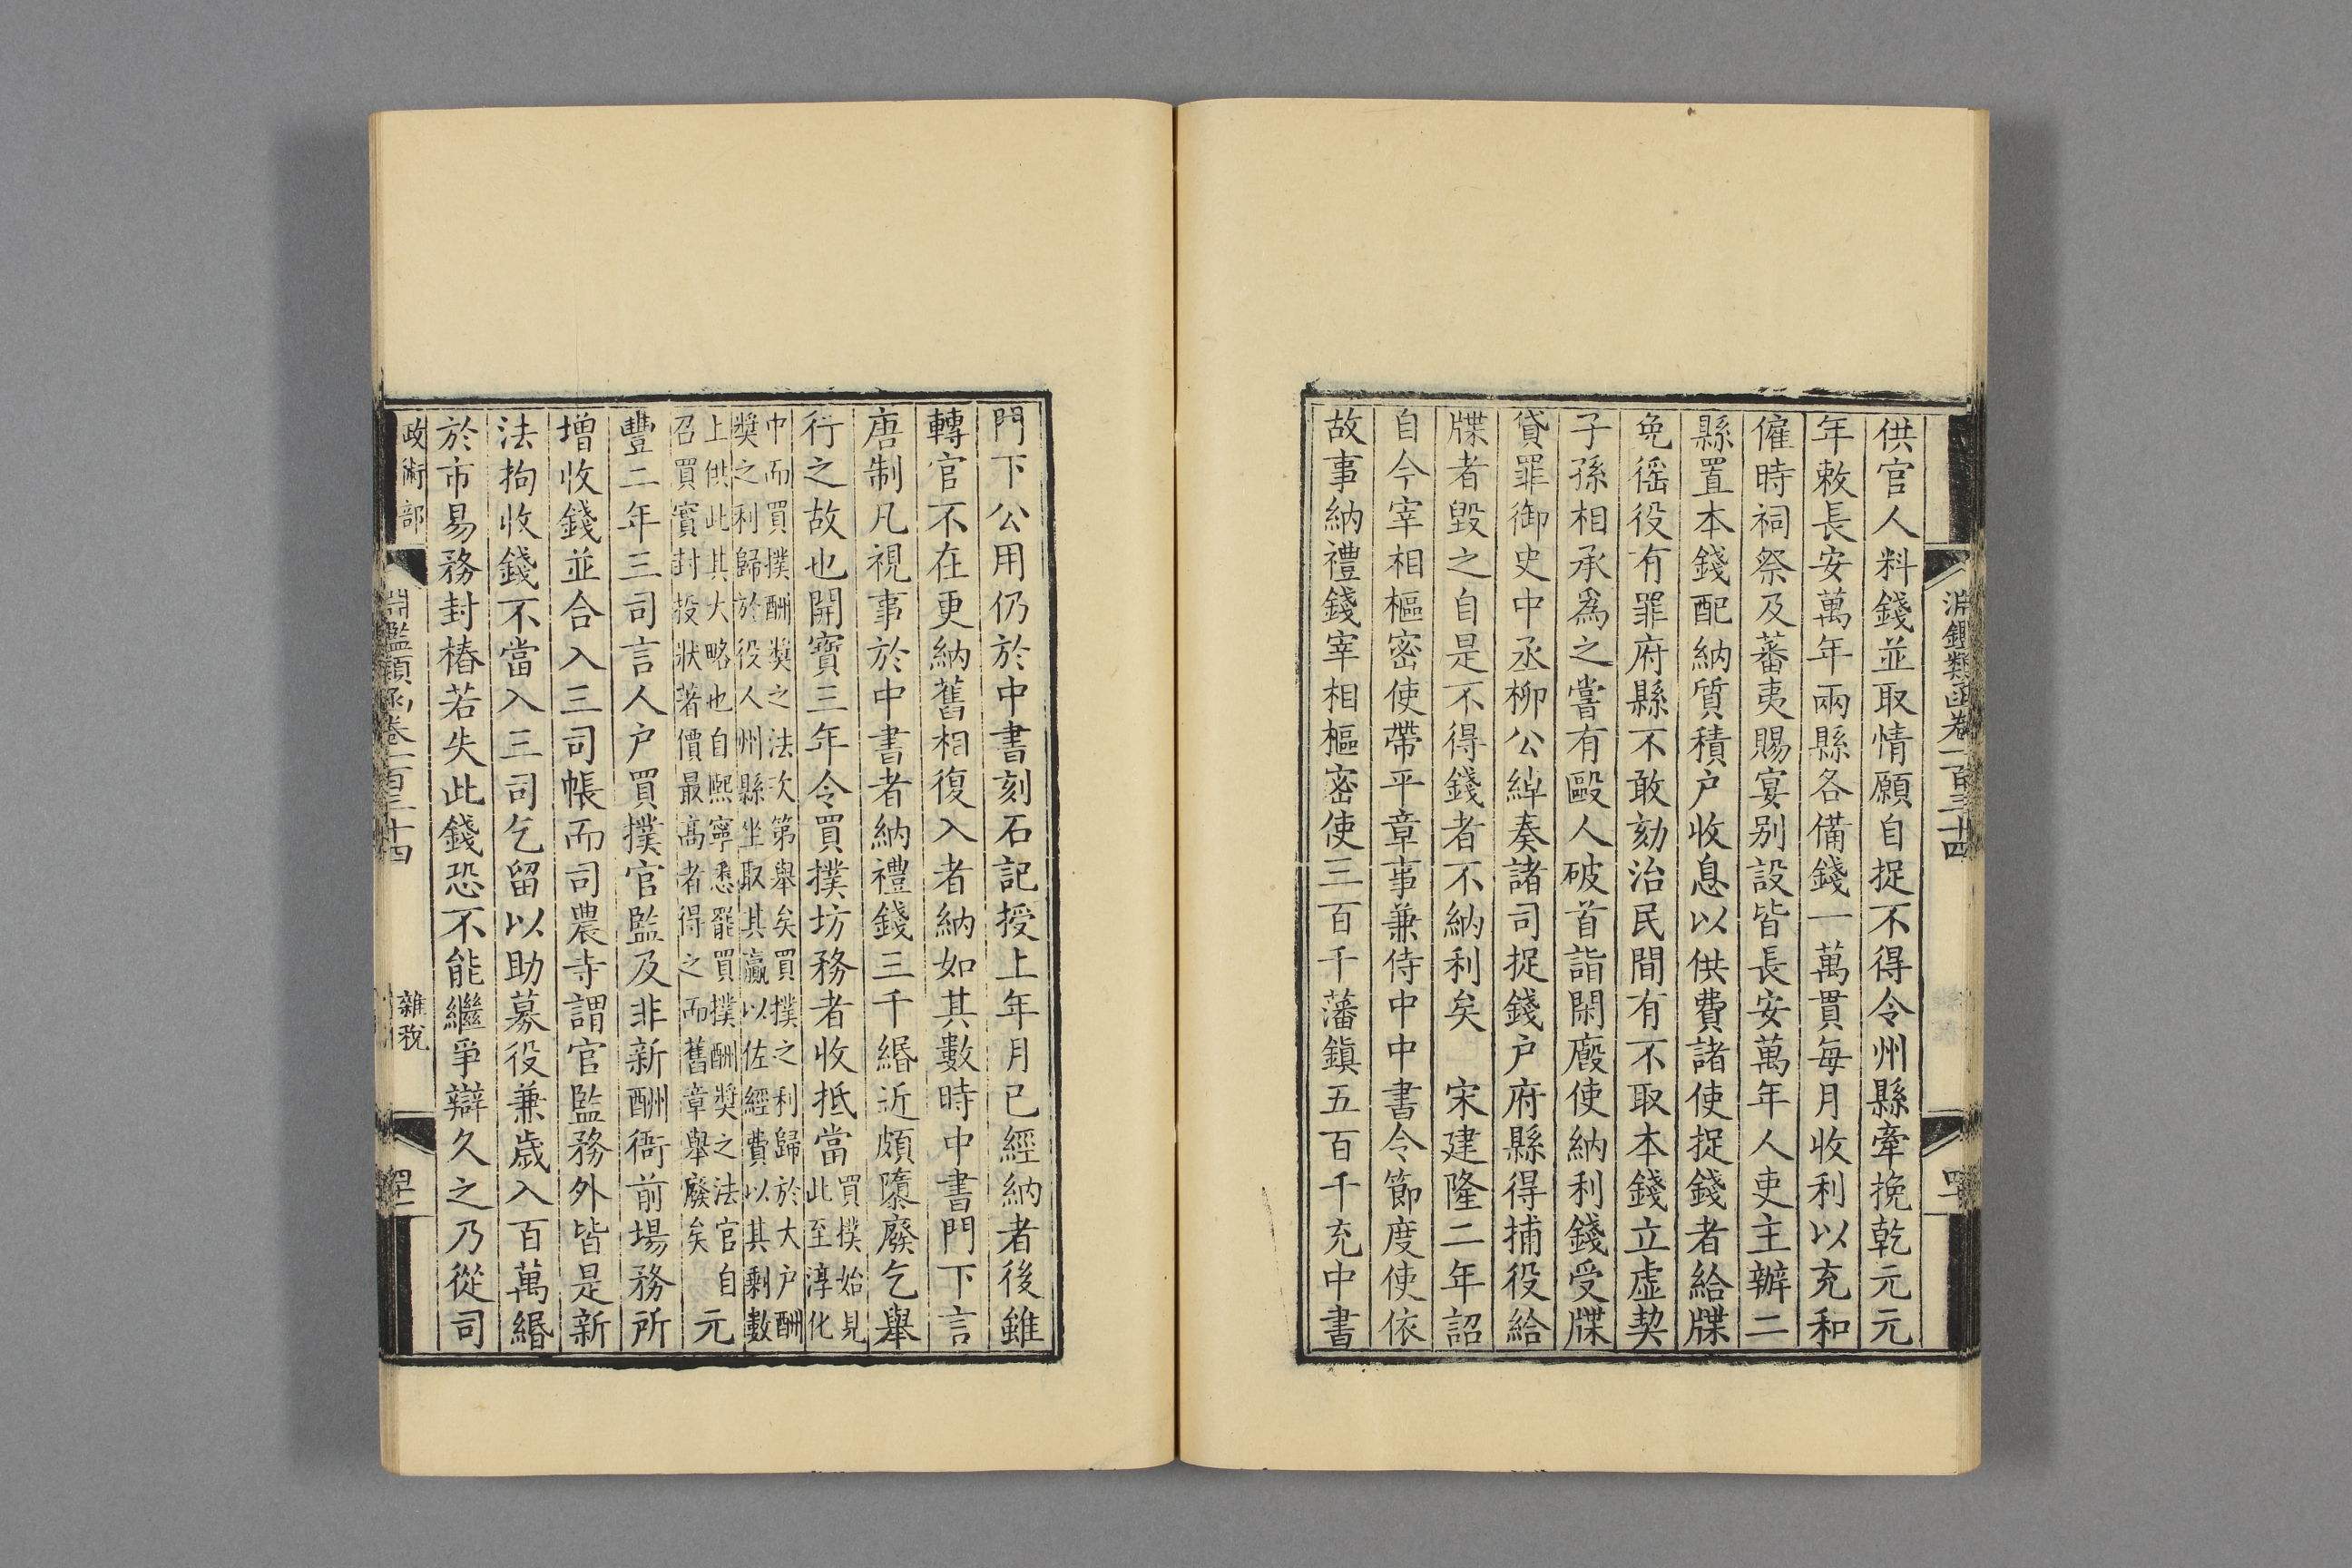 供官人料錢並取情願自捉不得令州縣牽挽乾元元
年敕長安萬年兩縣各備錢一萬貫每月收利以充和
僱時祠祭及蕃夷賜宴別設皆長安萬年人吏主辦二
縣置本錢配納質積户收息以供費諸使捉錢者給牒
免徭役有罪府縣不敢劾治民間有不取本錢立虛契
子孫相承為之嘗有毆人破首詣閑廄使納利錢受牒
貸罪御史中丞柳公綽奏諸司捉錢户府縣得捕役給
牒者毀之自是不得錢者不納利矣　宋建隆二年詔
自今宰相樞密使帶平章事兼侍中中書令節度使依
故事納禮錢宰相樞密使三百千藩鎮五百千充中書
門下公用仍於中書刻石記授上年月已經納者後雖
轉官不在更納舊相復入者納如其數時中書門下言
唐制凡視事於中書者納禮錢三千緡近頗隳廢乞舉
行之故也開寶三年令買撲坊務者收抵當
買撲始見
此至淳化
中而買撲酬奬之法次第舉矣買撲之利歸於大户酬
奬之利歸於役人州縣坐取其贏以佐經費以其剩數
上供此其大略也自熙寧悉罷買撲酬奬之法官自
召買實封投狀著價最高者得之而舊章舉廢矣
元
豐二年三司言人户買撲官監及非新酬衙前場務所
增收錢並合入三司帳而司農寺謂官監務外皆是新
法拘收錢不當入三司乞留以助募役兼歲入百萬緡
於市易務封樁若失此錢恐不能繼爭辯久之乃從司
政術部
淵鑑類函卷一百三十四
雜稅